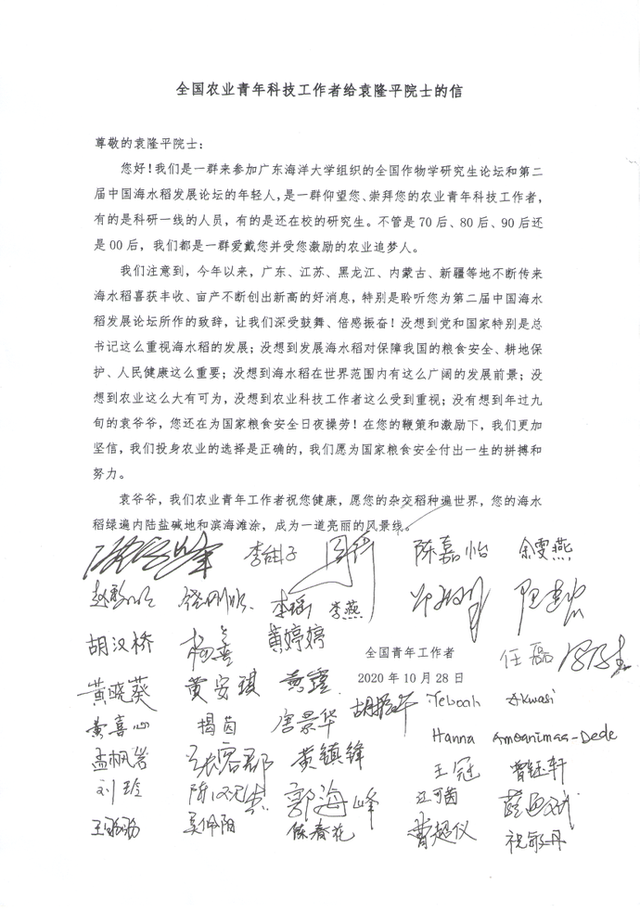 全国农业青年科技工作者给袁隆平院士的信
尊敬的袁隆平院士：
您好！我们是一群来参加广东海洋大学组织的全国作物学研究生论坛和第二
届中国海水稻发展论坛的年轻人，是一群仰望您、崇拜您的农业青年科技工作者，
有的是科研一线的人员，有的是还在校的研究生。不管是 70 后、80 后、90 后还
是 00 后，我们都是一群爱戴您并受您激励的农业追梦人。
我们注意到，今年以来，广东、江苏、黑龙江、内蒙古、新疆等地不断传来
海水稻喜获丰收、亩产不断创出新高的好消息，特别是聆听您为第二届中国海水
稻发展论坛所作的致辞，让我们深受鼓舞、倍感振奋！没想到党和国家特别是总
书记这么重视海水稻的发展；没想到发展海水稻对保障我国的粮食安全、耕地保
护、人民健康这么重要；没想到海水稻在世界范围内有这么广阔的发展前景；没
想到农业这么大有可为，没想到农业科技工作者这么受到重视；没有想到年过九
旬的袁爷爷，您还在为国家粮食安全日夜操劳！在您的鞭策和激励下，我们更加
坚信，我们投身农业的选择是正确的，我们愿为国家粮食安全付出一生的拼搏和
努力。
袁爷爷，我们农业青年工作者祝您健康，愿您的杂交稻种遍世界，您的海水
稻绿遍内陆盐碱地和滨海滩涂，成为一道亮丽的风景线。
李甜子 周 陈嘉怡 余雯燕
李瑶 李燕
胡汉桥 杨善 黄婷婷
全国青年工作者
任磊
2020 年 10 月 28 日
黄晓葵 黄安琪 黄 Yeboah Akwasi
黄喜心 揭茵 唐景华
Hanna Amoanimaa-Dede
孟帆岩 张容郡 黄镇锋 王冠 曾钰轩
刘玲 陈 郭海峰 江可茵
王璐璐 吴佩阳 陈春花 曹超仪 祝敏丹